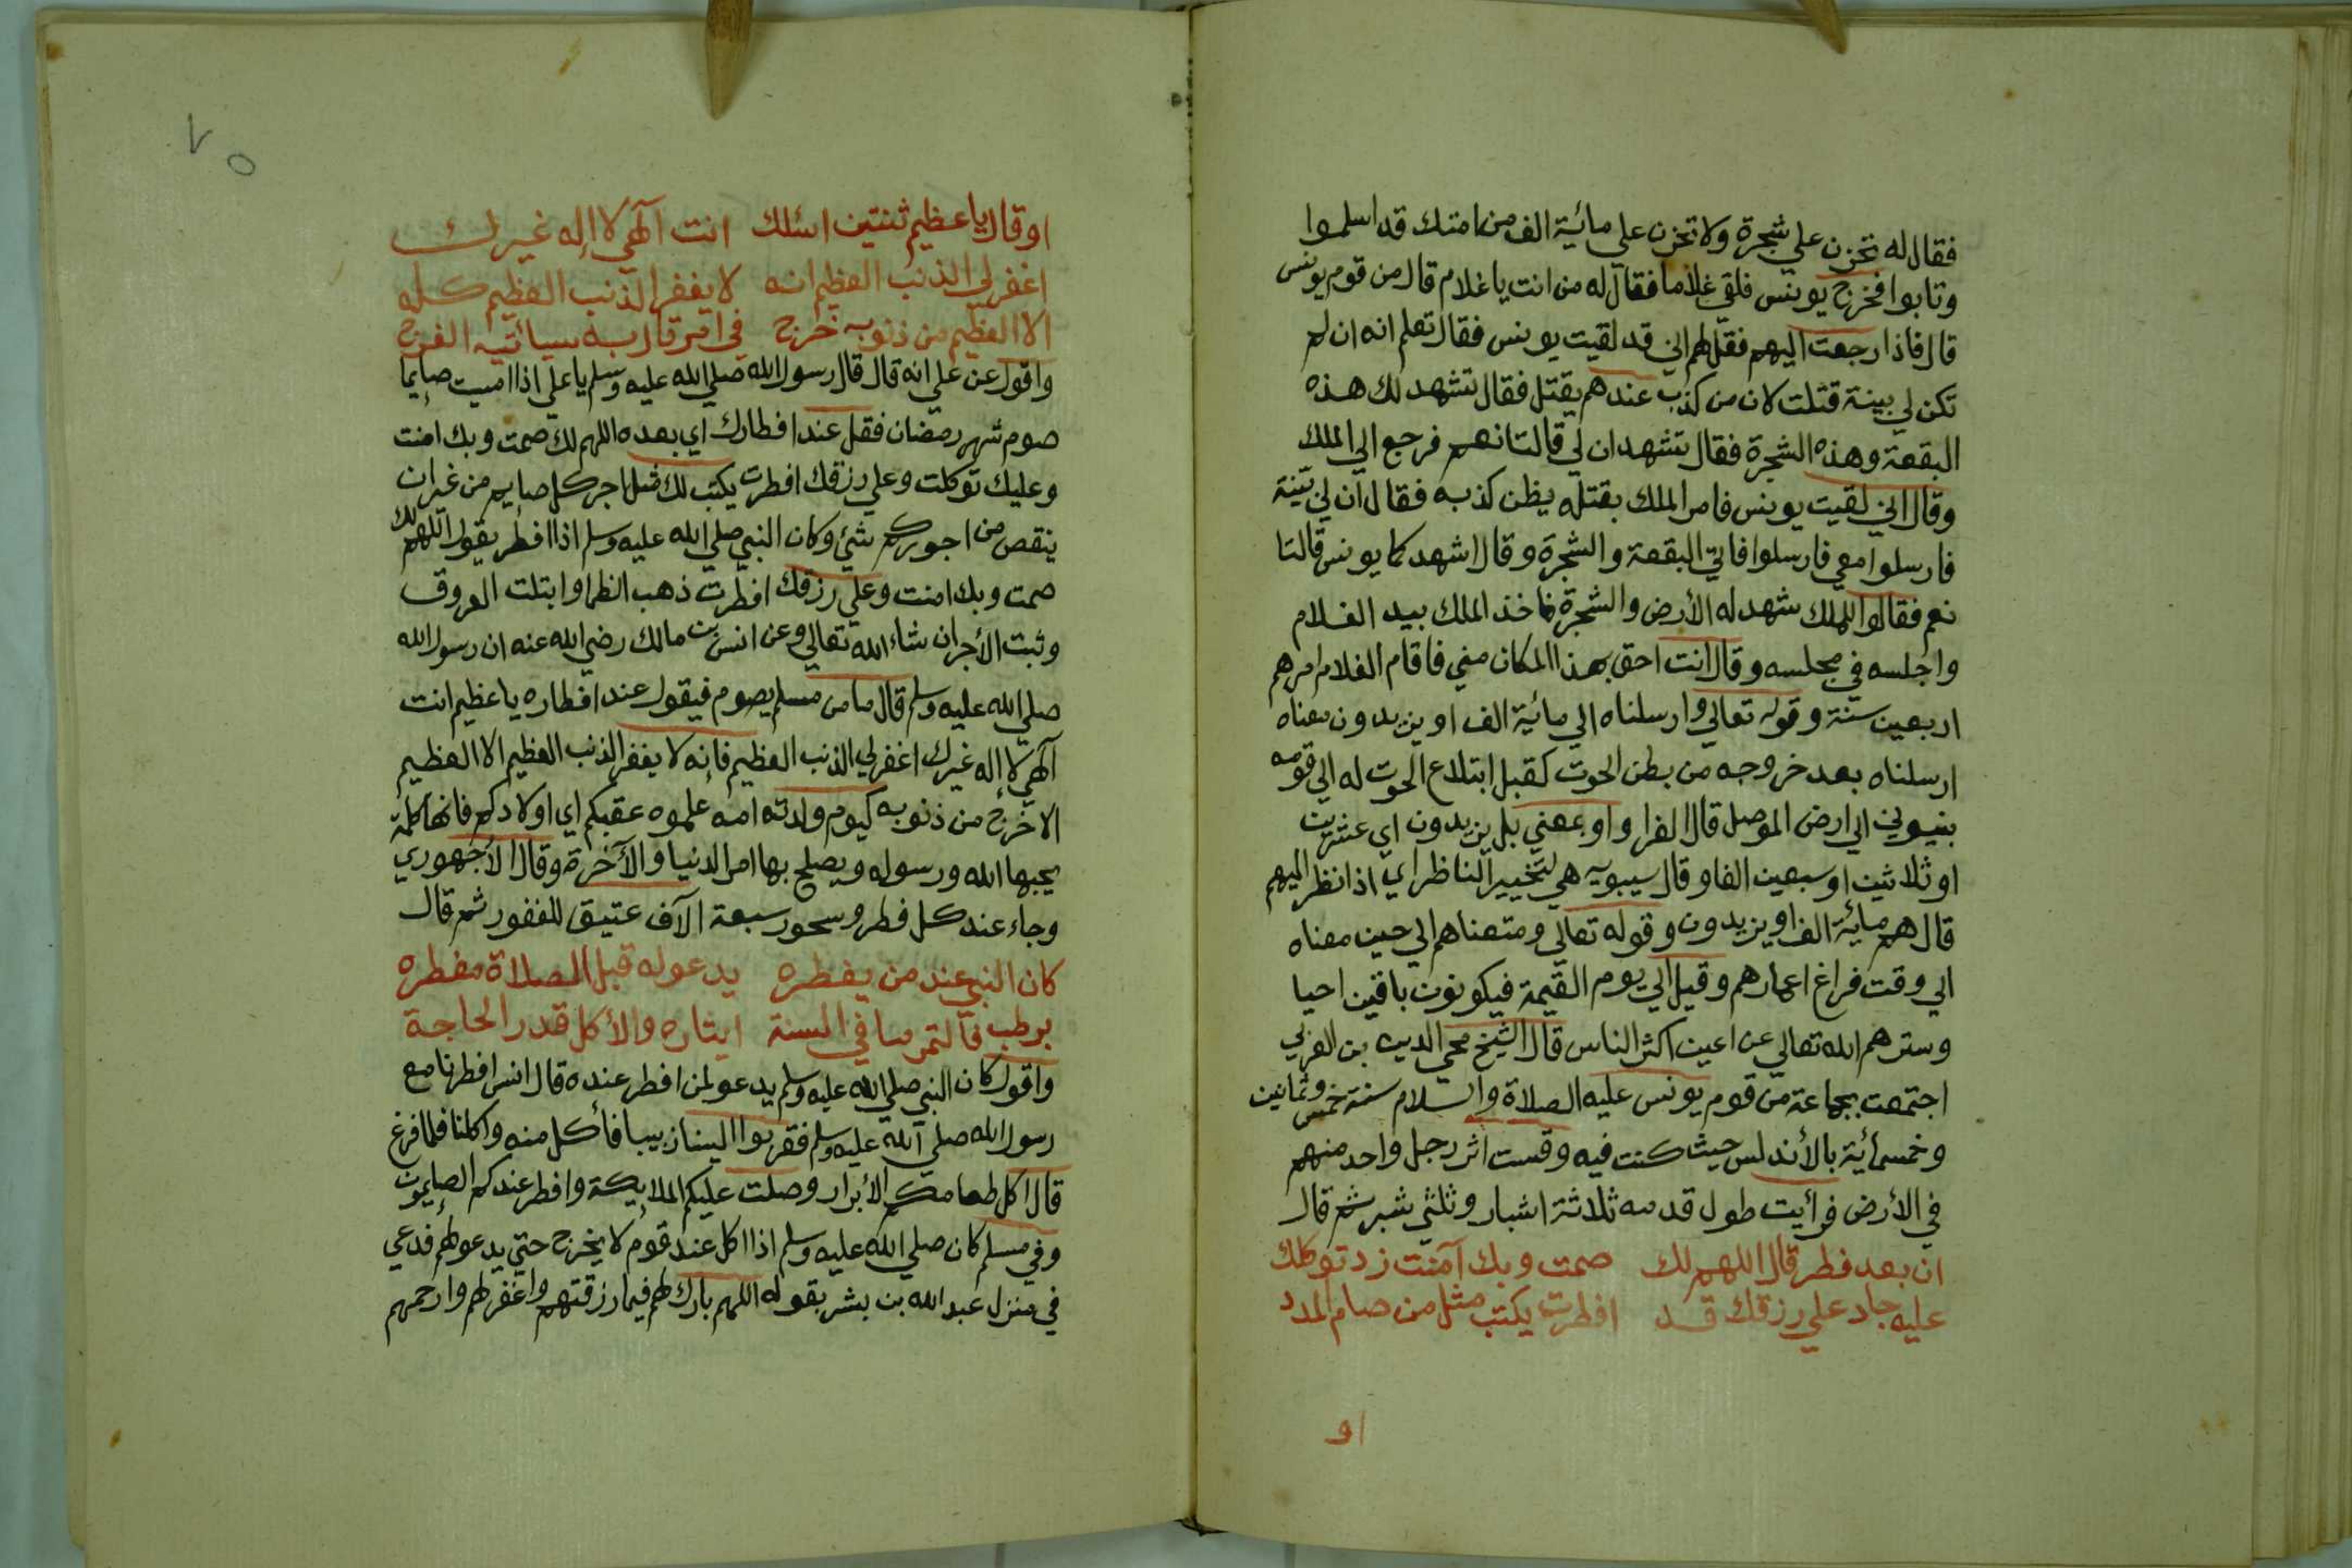 فقال له تحزن على شجرة ولا تحزن على مائية الف من امتك قد اسلموا
وتابوا فخرج يونس فلقي غلاما فقال له من انت يا غلام قال من قوم يونس
قال فاذا رجعت اليهم فقل لهم اني قد لقيت يونس فقال تعلم انه ان لم
تكن لي بينة قتلت لان من كذب عندهم يقتل فقال تشهد لك هذه
البقعة وهذه الشجرة فقال تشهدان لي قالتا نعم فرجع الي الملك
وقال اني لقيت يونس فامر الملك بقتله يظن كذبه فقال ان لي بينة
فارسلوا معي فارسلوا فاتي البقعة والشجرة وقال اشهدكما يونس قالتا
نعم فقالوا للملك شهد له الأرض والشجرة فاخذ الملك بيد الغلام
واجلسه في مجلسه وقال انت احق بهذا المكان مني فاقام الغلام امرهم
اربعين سنة وقوله تعالي وارسلناه الي مائية الف او يزيدون معناه
ارسلناه بعد خروجه من بطن الحوت كقبل ابتلاع الحوت له الي قومه
بنينوي الي ارض الموصل قال الفرا واو بمعني بل يزيدون اي عشرين
او ثلاثين او سبعين الفا وقال سيبويه هي لتخيير الناظر اي اذا نظر اليهم
قال هم مائية الف او يزيدون وقوله تعالي ومتعناهم الي حين معناه
الي وقت فراغ اعمارهم وقيل الي يوم القيمة فيكونون باقين احيا
وسترهم الله تعالي عن اعين اكثر الناس قال الشيخ محي الدين بن العربي
اجتمعت بجماعة من قوم يونس عليه الصلاة والسلام سنة خمس وثمانين
وخمسمائية بالأندلس حيث كنت فيه وقست اثر رجل واحد منهم
في الأرض فرأيت طول قدمه ثلاثة اشبار وثلثي شبر ثم قال
ان بعد فطر قال اللهم لك صمت وبك آمنت زد توكلك
عليه جاد علي رزقك قد افطرت يكتب مثل من صام المدد
او
٧٥
او قال يا عظيم ثنتين اسئلك انت آلهي لا إله غيرك
اغفر لي الذنب العظيم انه لا يغفر الذنب العظيم كله
الا العظيم من ذنوبه خرج في اقرقاربه سيأتيه الفرج
واقول عن علي انه قال قال رسول الله صلي الله عليه وسلم يا علي اذا امسيت صايما
صوم شهر رمضان فقل عند افطارك اي بعده اللهم لك صمت وبك امنت
وعليك توكلت وعلي رزقك افطرت يكتب لك مثل اجر كل صايم من غير ان
ينقص من اجوركم شيء وكان النبي صلي الله عليه وسلم اذا افطر يقول اللهم لك
صمت وبك امنت وعلي رزقك افطرت ذهب الظما وابتلت العروق
وثبت الأجر ان شاء الله تعالي وعن انس بن مالك رضي الله عنه ان رسول الله
صلي الله عليه وسلم قال ما من مسلم يصوم فيقول عند افطاره يا عظيم انت
آلهي لا إله غيرك اغفر لي الذنب العظيم فانه لا يغفر الذنب العظيم الا العظيم
الا خرج من ذنوبه كيوم ولدته امه علموه عقبكم اي اولادكم فانها كلمة
يحبها الله ورسوله ويصلح بها امر الدنيا والآخرة وقال الأجهوري
وجاء عند كل فطر وسحور سبعة الآف عتيق للغفور ثم قال
كان النبي عند من يفطره يدعو له قبل الصلاة مفطره
برطب فالتمر ما في السنة ايثاره والأكل قدر الحاجة
واقول كان النبي صلي الله عليه وسلم يدعو لمن افطر عنده قال انس افطرنا مع
رسول الله صلي الله عليه وسلم فقربوا الينا زبيبا فأكل منه واكلنا فلما فرغ
قال اكل طعامكم الأبرار وصلت عليكم الملايكة وافطر عندكم الصايمون
وفي مسلم كان صلي الله عليه وسلم اذا اكل عند قوم لا يخرج حتي يدعو لهم فدعي
في منزل عبد الله بن بشر بقوله اللهم بارك لهم فيما رزقتهم واغفر لهم وارحمهم